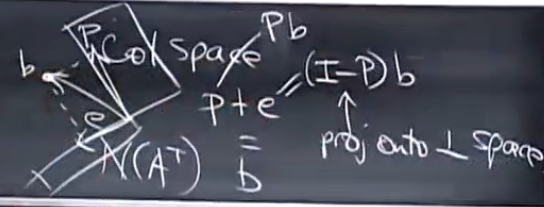 P col space Pb
b
p + e = (I-P)b
e
=
N(A^T) b proj onto ⊥ space